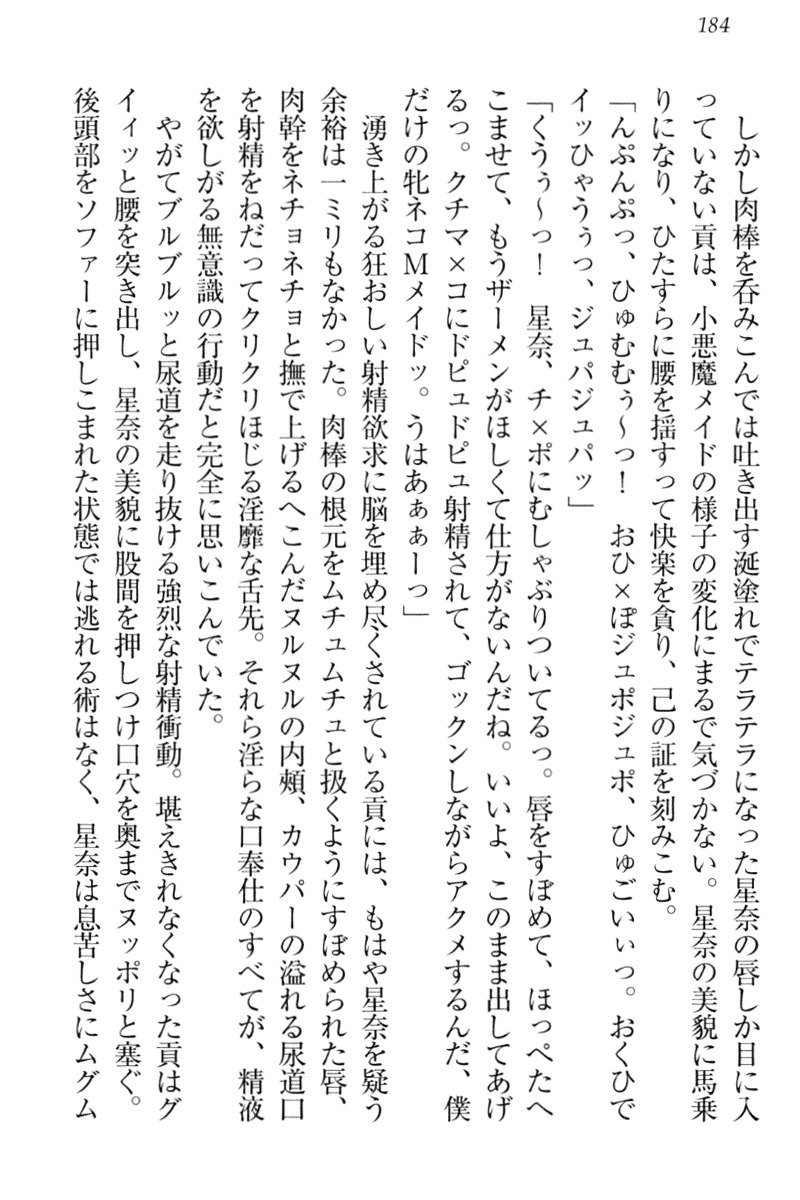 184
しかし肉棒を呑みこんでは吐き出す涎塗れでテラテラになった星奈の唇しか目に入
っていない貢は、小悪魔メイドの様子の変化にまるで気づかない。星奈の美貌に馬乗
りになり、ひたすらに腰を揺すって快楽を貪り、己の証を刻みこむ。
「んぷんぷっ、ひゅむむぅ～っ！　おひ×ぽジュポジュポ、ひゅごいぃっ。おくひで
イッひゃうぅっ、ジュパジュパッ」
「くうぅ～っ！　星奈、チ×ポにむしゃぶりついてるっ。唇をすぼめて、ほっぺたへ
こませて、もうザーメンがほしくて仕方がないんだね。いいよ、このまま出してあげ
るっ。クチマ×コにドピュドピュ射精されて、ゴックンしながらアクメするんだ、僕
だけの牝ネコMメイドッ。うはあぁぁーっ」
湧き上がる狂おしい射精欲求に脳を埋め尽くされている貢には、もはや星奈を疑う
余裕は一ミリもなかった。肉棒の根元をムチュムチュと扱くようにすぼめられた唇、
肉幹をネチョネチョと撫で上げるへこんだヌルヌルの内頬、カウパーの溢れる尿道口
を射精をねだってクリクリほじる淫靡な舌先。それら淫らな口奉仕のすべてが、精液
を欲しがる無意識の行動だと完全に思いこんでいた。
やがてブルブルッと尿道を走り抜ける強烈な射精衝動。堪えきれなくなった貢はグ
イィッと腰を突き出し、星奈の美貌に股間を押しつけ口穴を奥までヌッポリと塞ぐ。
後頭部をソファーに押しこまれた状態では逃れる術はなく、星奈は息苦しさにムグム